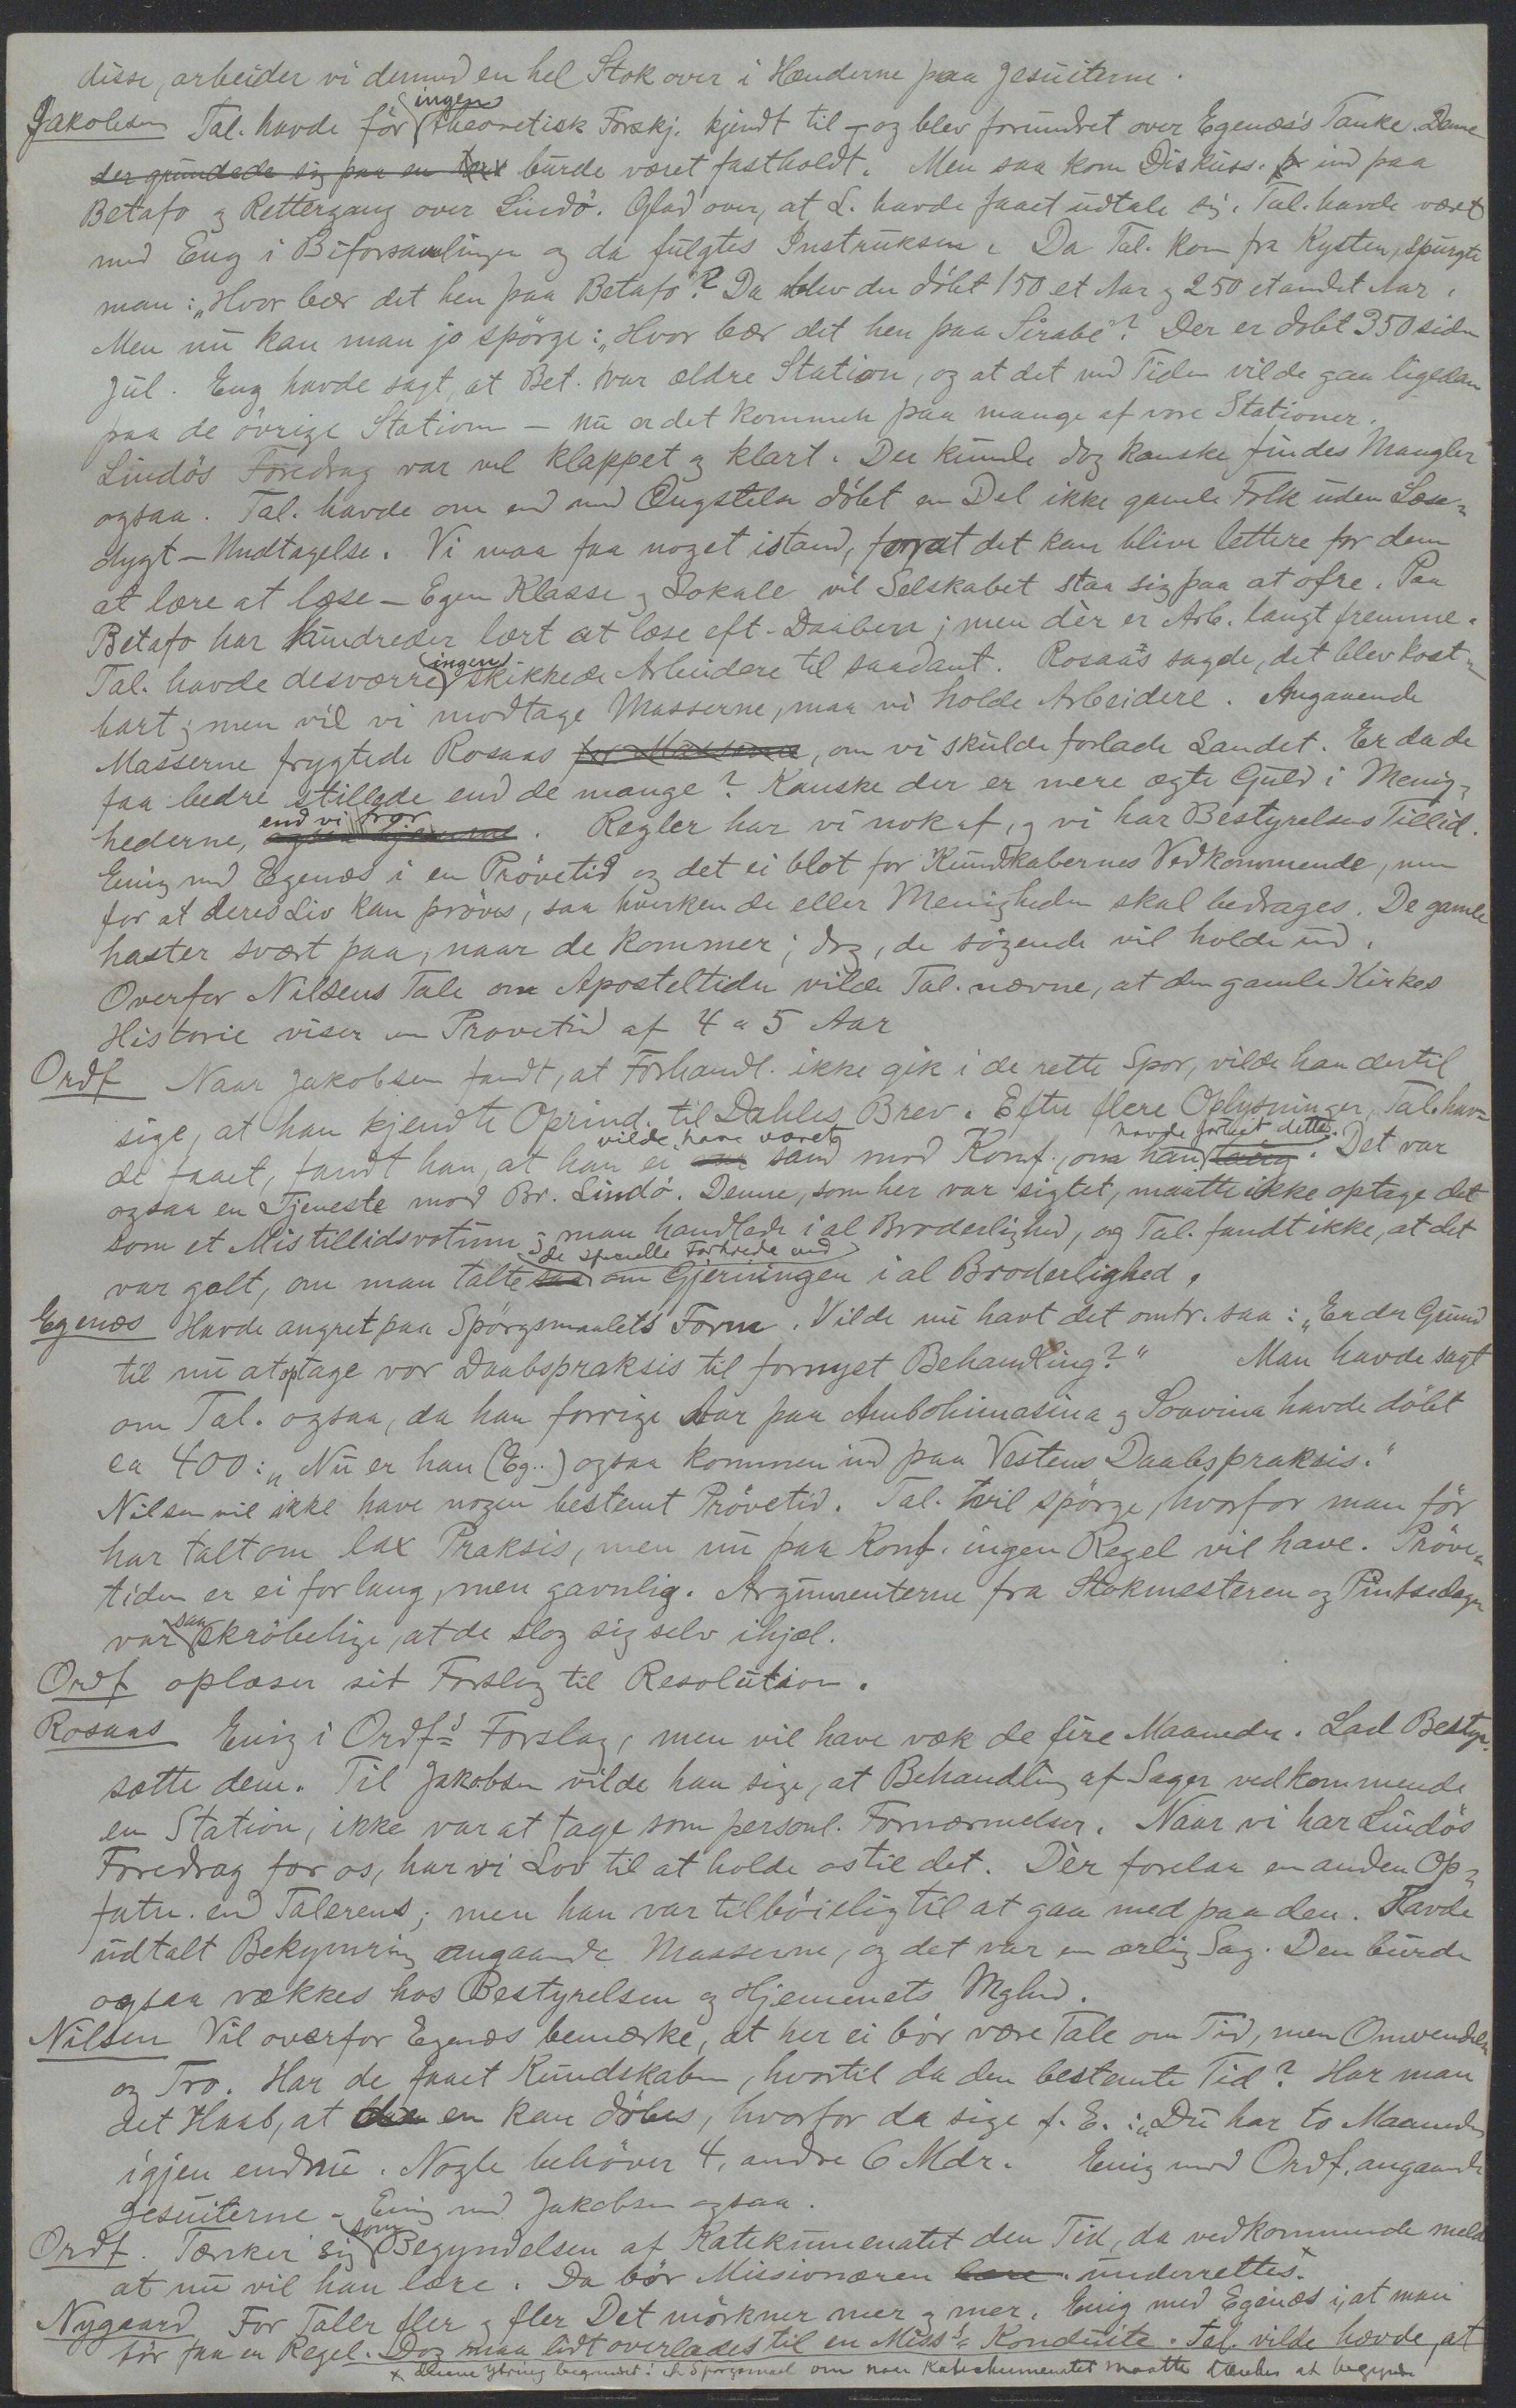 disse, arbeider vi dermed en hel Stok over i Hænderne paa Jesuiterne.
Jakobsen Tal. havde før ingen theoretisk Forskj. kjendt til – og blev forundret over Egenæs's Tanke. Denne
der grundede sig paa en burde været fastholdt. Men saa kom Diskuss. ind paa
Betafo og Rettergang over Lindö. Glad over, at L. havde faaet udtale sig. Tal. havde været
med Eng i Biforsamlingen og da fulgtes Instruksen. Da Tal. kom fra Kysten, spurgte
man: „Hvor bær det hen paa Betafo"? Da blev der döbt 150 et Aar og 250 et andet Aar.
Men nu kan man jo spörge: „Hvor bær det hen paa Sirabe"? Der er döbt 350 siden
Jul. Eng havde sagt, at Bet. var ældre Station, og at det med Tiden vilde gaa ligedan
paa de övrige Station – nu er det kommen paa mange af vore Stationer.
Lindös Foredrag var vel klappet og klart. Der kunde dog kanske findes Mangler
ogsaa. Tal. havde om end med Ængstelse döbt en Del ikke gamle Folk uden Læse-
dygt – Undtagelse. Vi maa faa noget istand, forat det kan blive lettere for dem
at lære at læse – Egen Klasse og Lokale vil Selskabet staa sig paa at ofre. Paa
Betafo har Hundreder lært at læse eft. Daaben; men dèr er Arb. langt fremme.
Tal. havde desværre ingen skikkede Arbeidere til saadant. Rosaas sagde, det blev kost-
bart; men vil vi modtage Masserne, maa vi holde Arbeidere. Angaaende
Masserne frygtede Rosaas for Masserne, om vi skulde forlade Landet. Er da de
faa bedre stillede end de mange? Kanske der er mere ægte Guld i Menig-
hederne, end vi tror. Regler har vi nok af, og vi har Bestyrelses Tillid.
Enig med Egenæs i en Prövetid og det ei blot for Kundskabernes Vedkommende, men
for at deres Liv kan pröves, saa hverken de eller Menigheden skal bedrages. De gamle
haster svært paa, naar de kommer; dog, de sögende vil holde ud.
Overfor Nilsens Tale om Aposteltiden vilde Tal. nævne, at den gamle Kirkes
Historie viser en Prøvetid af 4 a 5 Aar
Ordf Naar Jakobsen fandt, at Forhandl. ikke gik i de rette Spor, vilde han dertil
sige, at han kjendte Oprind. til Dahles Brev. Efter flere Oplysninger, Tal. hav-
de faaet, fandt han, at han ei vilde have været sand mod Konf., om han havde fortiet dette. Det var
ogsaa en Tjeneste mod Br. Lindö. Denne, som her var sigtet, maatte ikke optage det
som et Mistillidsvotum; man handlede i al Broderlighed, og Tal. fandt ikke, at det
var galt, om man talte om de specielle Forhold ved Gjerningen i al Broderlighed.
Egenæs Havde angret paa Spörgsmaalets Form. Vilde nu havt det omtr. saa: „Er der Grund
til nu at optage vor Daabspraksis til fornyet Behandling?" Man havde sagt
om Tal. ogsaa, da han forrige Aar paa Ambohimasina og Soavina havde döbt
ca 400: „Nu er han (Eg..) ogsaa kommen ind paa Vestens Daabspraksis."
Nilsen vil ikke have nogen bestemt Prövetid. Tal. vil spörge, hvorfor man för
har talt om lax Praksis, men nu paa Konf. ingen Regel vil have. Pröve-
tiden er ei for lang, men gavnlig. Argumenterne fra Stokmesteren og Pintsedagen
var saa skröbelige, at de slog sig selv ihjel.
Ordf oplæser sit Forslag til Resolution.
Rosaas Enig i Ordf's Forslag, men vil have væk de fire Maaneder. Lad Bestyr.
sætte dem. Til Jakobsen vilde han sige, at Behandling af Sager vedkommende
en Station, ikke var at tage som personl. Fornærmelser. Naar vi har Lindös
Foredrag for os, har vi Lov til at holde os til det. Dèr forelaa en anden Op-
fatn. end Talerens; men han var tilböielig til at gaa med paa den. Havde
udtalt Bekymring angaande Masserne, og det var en ærlig Sag. Den burde
ogsaa vækkes hos Bestyrelsen og Hjemmets Mghed.
Nilsen Vil overfor Egenæs bemærke, at her ei bör være Tale om Tid, men Omvendelse
og Tro. Har de faaet Kundskaben, hvortil da den bestemte Tid? Har man
det Haab, at en kan döbes, hvorfor da sige f. E.: „Du har to Maaneder
igjen endnu. Nogle behöver 4, andre 6 Mdr. Enig med Ordf. angaande
Jesuiterne – Enig med Jakobsen ogsaa.
Ordf. Tænker sig som Begyndelsen af Katekumenatet den Tid, da vedkommende melder
at nu vil han lære. Da bör Missionæren underrettes. x
Nygaard For Taler fler og fler Det mörkner mer og mer. Enig med Egenæs i, at man
bör faa en Regel. Dog maa lidt overlades til en Miss's Konduite. Tal. vilde hævde, at
x Denne Ytring begrundet i et Spörgsmaal om naar Katechumenatet maatte tænkes at begynde